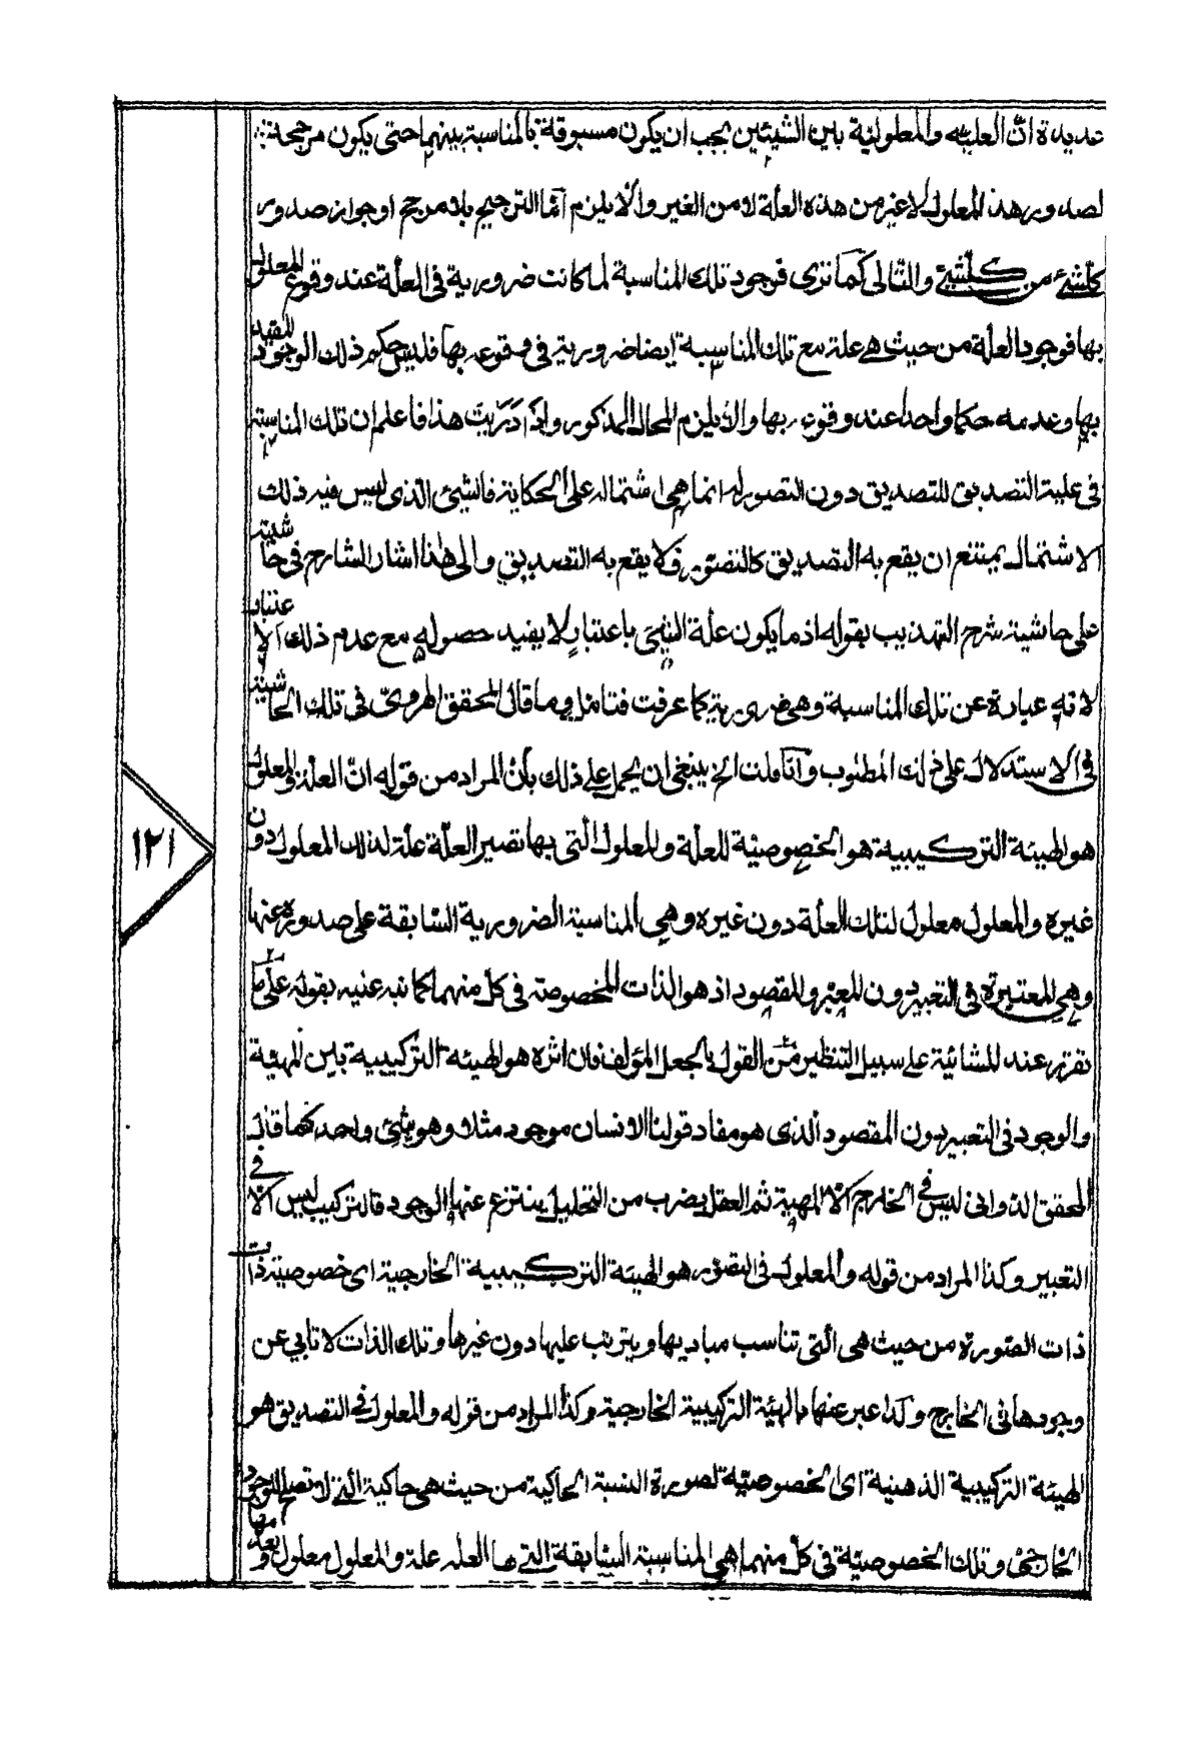 عديدة انّ العليته والمعلولية بين الشيئين يجب ان يكون مسبوقة بالمناسبة بينهما حتى يكون مرجحة
لصدور هذ المعلول لاغير من هذه العلة لا من الغير والّا يلزم امّا الترجيح بلا مرجح او جواز صدور
كلّشئ من كلّشئ والتّالى كما ترى فوجود تلك المناسبة لما كانت ضرورية فى العلّة عند وقوع المعلول
بها فوجود العلّة من حيث هى علة مع تلك المناسبة ايضا ضرورية فى وقوعه بها فليس حكم ذلك الوجود المقيد
بها وعدمه حكما واحدا عند وقوعه بها والّا يلزم المحال المذكور واذا دَرَيتَ هذا فاعلم ان تلك المناسبة
فى علية التصديق للتصديق دون التصور له انما هى اشتماله على الحكاية فالشئ الّذى ليس فيه ذلك
الاشتمال يمتنع ان يقع به التصديق كالتصوّر فلا يقع به التصديق والى هذا اشار الشارح فى حاشيته
على حاشية شرح التهذيب بقوله اذ ما يكون علّة الشئ باعتبارٍ لا يفيد حصوله مع عدم ذلك الاعتبار
لانّه عبارة عن تلك المناسبة وهى ضرورية كما عرفت فتامل وما قال المحقق الهروىّ فى تلك الحاشية
فى الاستدلال على ذلك المطلوب وانّما قلت الخ ينبغى ان يحمل على ذلك بأن المراد من قوله انّ العلّة والمعلول
هو الهيئة التركيبية هو الخصوصيّة للعلّة وللمعلول الّتى بها تصير العلّة علّة لذلك المعلول دون
غيره والمعلول معلول لتلك العلّة دون غيره وهى المناسبة الضرورية السّابقة على صدوره عنها
وهى المعتبرة فى التعبير دون المعبر والمقصود اذ هو الذات المخصوصة فى كلّ منهما كما نبه عنيه بقوله على ما
تقرر عند المشائية على سبيل التنظير من القول بالجعل المؤلف فان اثره هو الهيئة التركيبية بين المهيّة
والوجود فى التعبير دون المقصود الّذى هو مفاد قولنا الانسان موجود مثلا وهو شئ واحد كما قال
المحقق الدوانى ليس فى الخارج الّا المهية ثم العقل بضرب من التحليل ينتزع عنها الوجود فالتركيب ليس الّا فى
التعبير وكذا المراد من قوله والمعلول فى التصوّر هو الهيئة التركيبية الخارجية اى خصوصية ذات
ذات الصّورة من حيث هى الّتى تناسب مباديها ويترتب عليها دون غيرها وتلك الذات لا تابى عن
وجودها فى الخارج وكذا عبر عنها بالهيئة التركيبية الخارجية وكذا المراد من قوله والمعلول فى التصديق هو
الهيئة التركيبية الذهنية اى الخصوصيّة لصورة النسبة الحاكية من حيث هى حاكية الّتى لا تصلح للوجود
الخارجىّ وتلك الخصوصيّة فى كلّ منهما هى المناسبة السّابقة التى بها العلة علة والمعلول معلول وبعد
١٢١